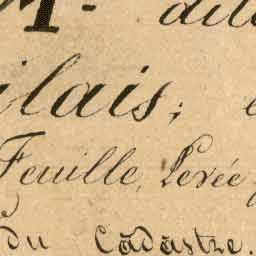 M. dit
ilais; e
Feuille, Levée
du Cadastre.